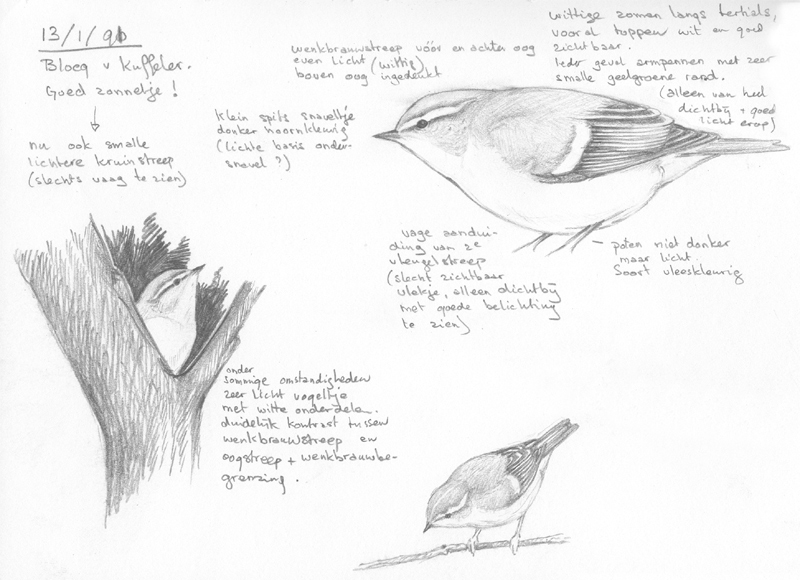 13/1/96
Blocq v Kuffeler.
Goed zonnetje!
nu ook smalle
lichtere kruinstreep
(slechts vaag te zien)
klein spits snaveltje
donker hoornkleurig
(lichte basis onder-
snavel?)
wenkbrauwstreep vóór en achter oog
even licht (wittig)
boven oog ingedeukt
wittige zomen langs tertials,
vooral toppen wit en goed
zichtbaar.
Ieder geval armpennen met zeer
smalle geelgroene rand.
(alleen van heel
dichtbij + goed
licht erop)
vage aandui-
ding van 2e
vleugelstreep
(slecht zichtbaar
vlekje, alleen dichtbij
met goede belichting
te zien)
poten niet donker
maar licht.
Soort vleeskleurig
onder
sommige omstandigheden
zeer licht vogeltje
met witte onderdelen.
duidelijk kontrast tussen
wenkbrauwstreep en
oogstreep + wenkbrauwbe-
grenzing.